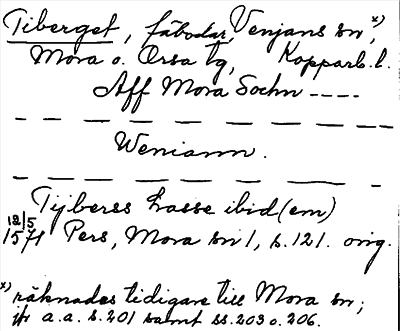 Tiberget, fäbodar, Venjans sn x),
Mora o. Orsa tg, Kopparb. l.
Aff Mora Sochn ----
Weniann.
Tijberss Lasse ibid(em)
12/5 1571 Pers, Mora sn 1, s. 121. orig.
x) räknades tidigare till Mora sn;
jfr a.a. s. 201 samt ss. 203 o. 206.